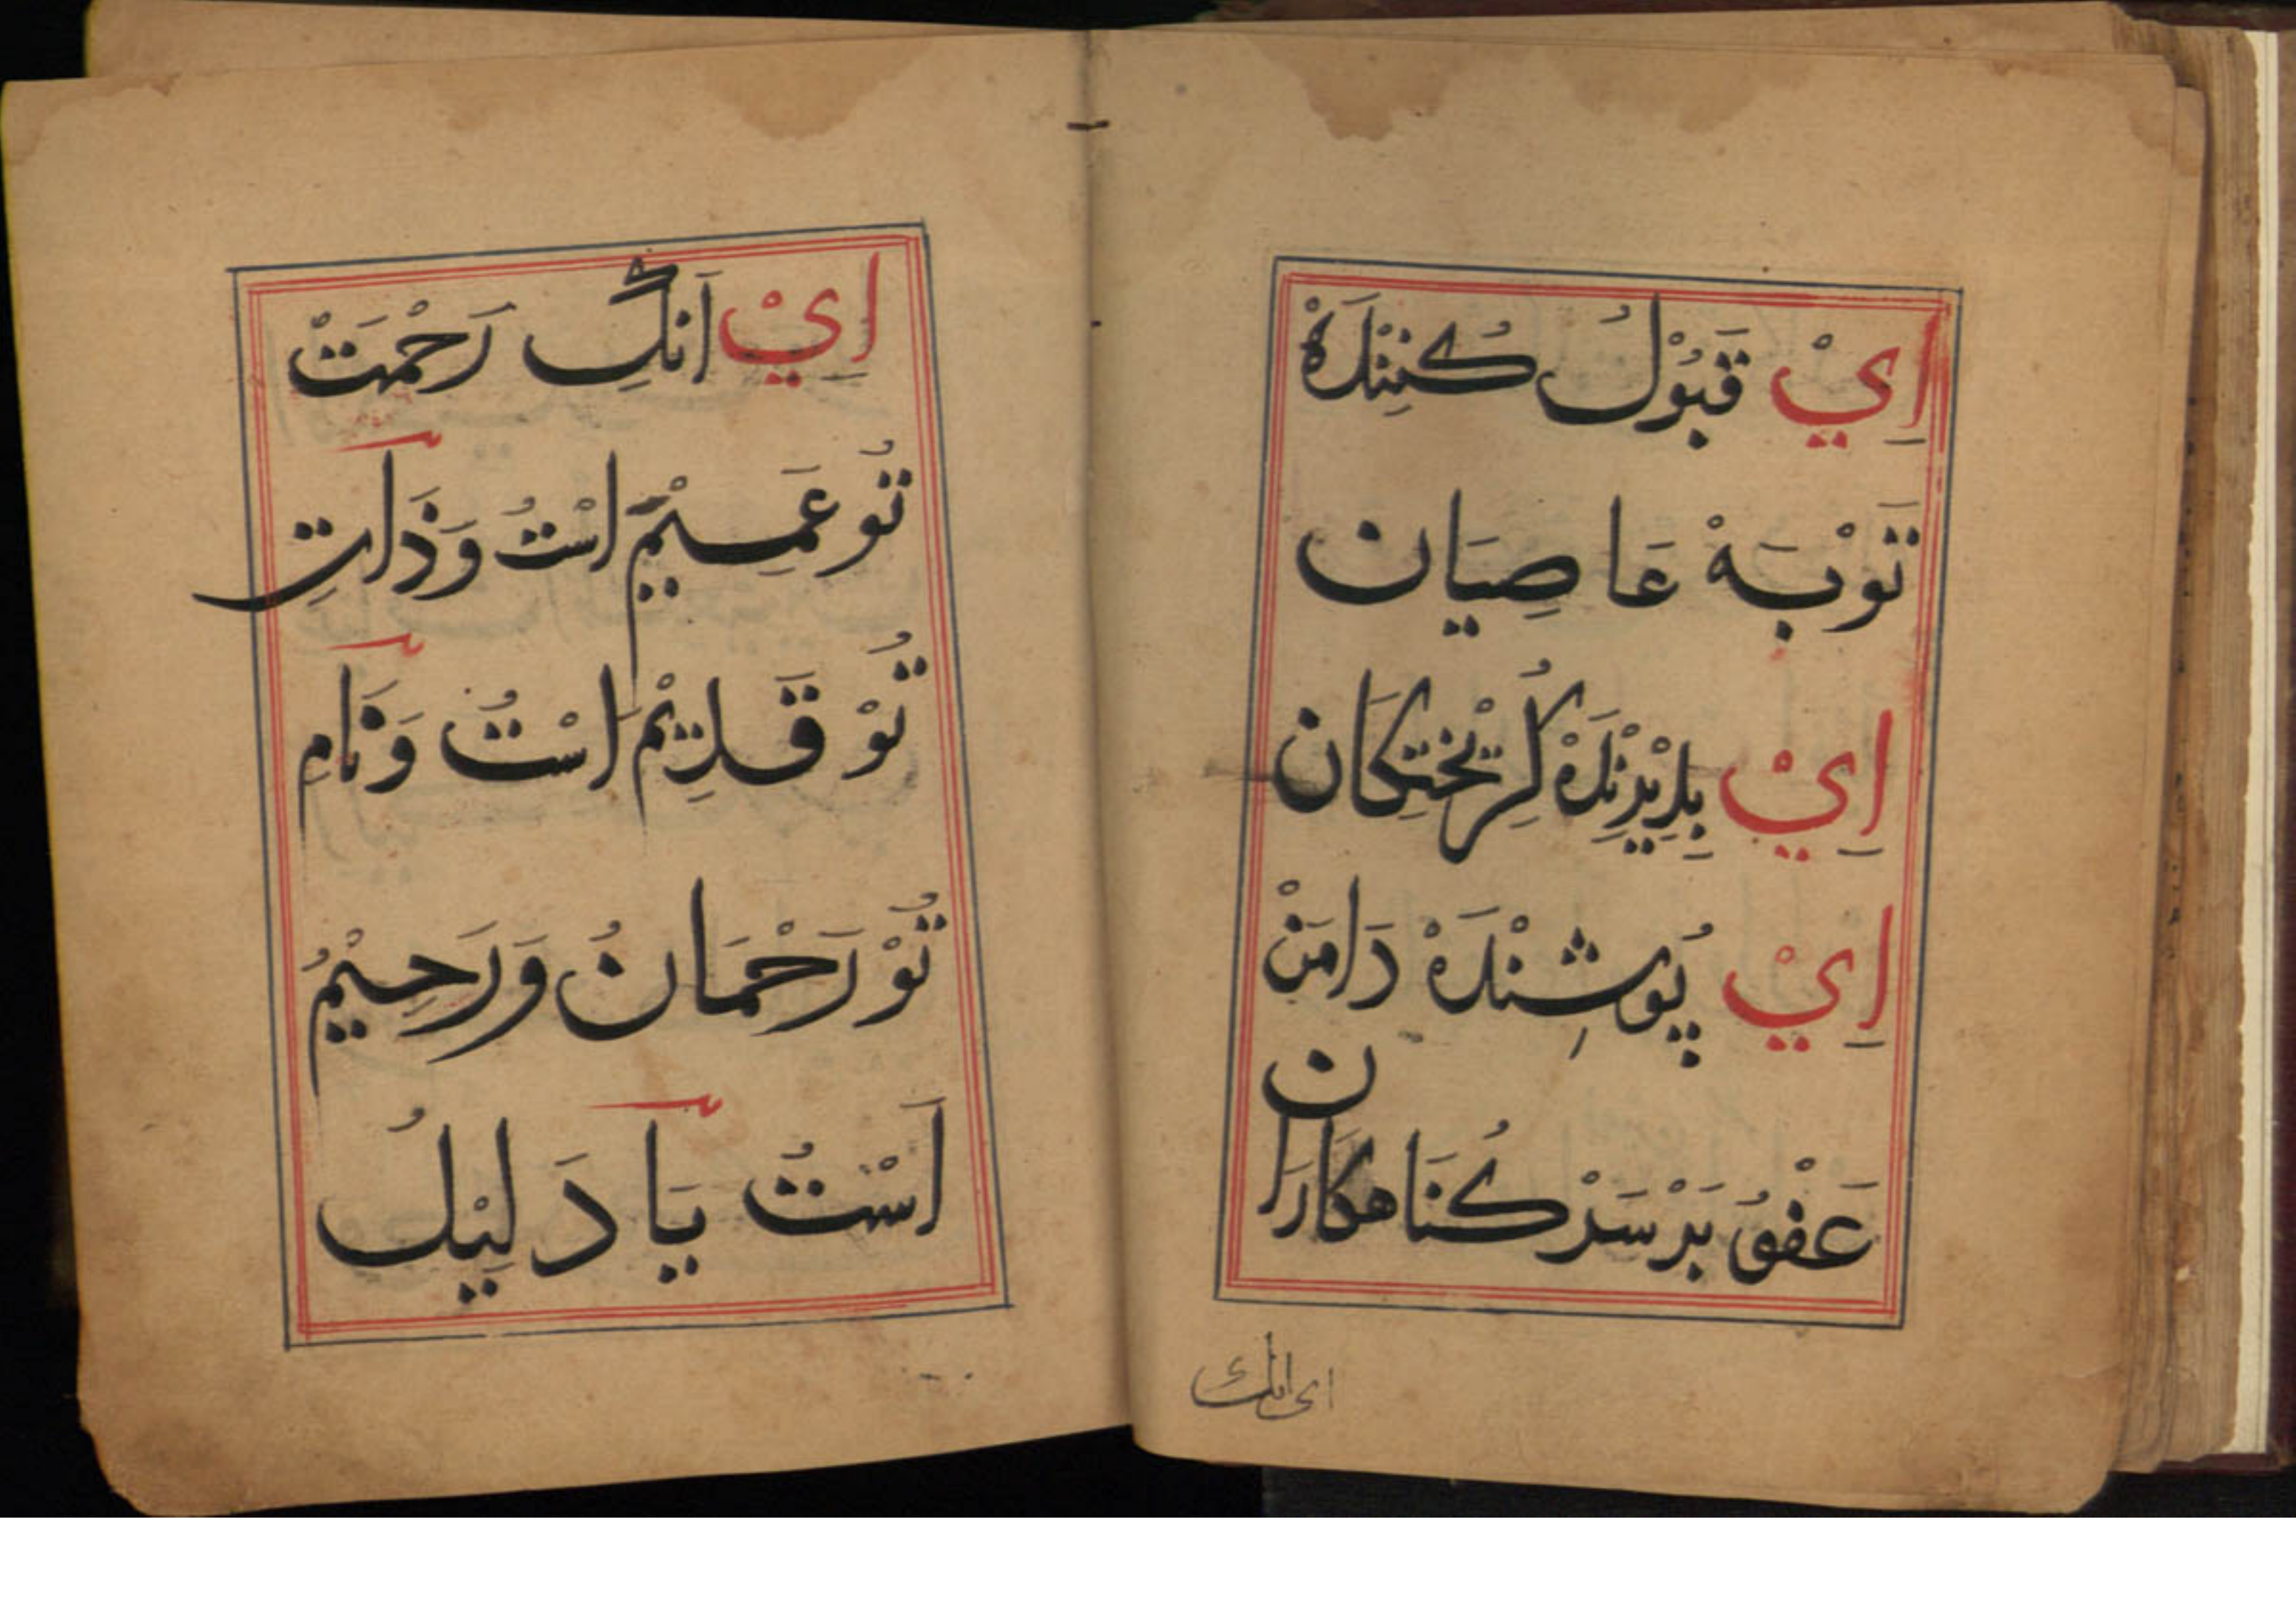 اِيْ قَبُوْلُ كُنِنْدَهْ
تَوْبَهْ عَاصِيَان
اِيْ بِدِيْرِنْدَهْ كُرِيْخْتِكَان
اِيْ پُوشِنْدَهْ دَامَنْ
عَفْوُ بَرْ سَرْ كُنَاهكَارَان
ای انك
اِيْ اَنكِ رَحْمَتْ
تُو عَمِيْمْ اسْتُ وَذَاتِ
تُوْ قَدِيْمْ اسْتُ وَنَامِ
تُوْ رَحْمَانُ وَرَحِيْمُ
اَسْتُ يَا دَلِيْلُ